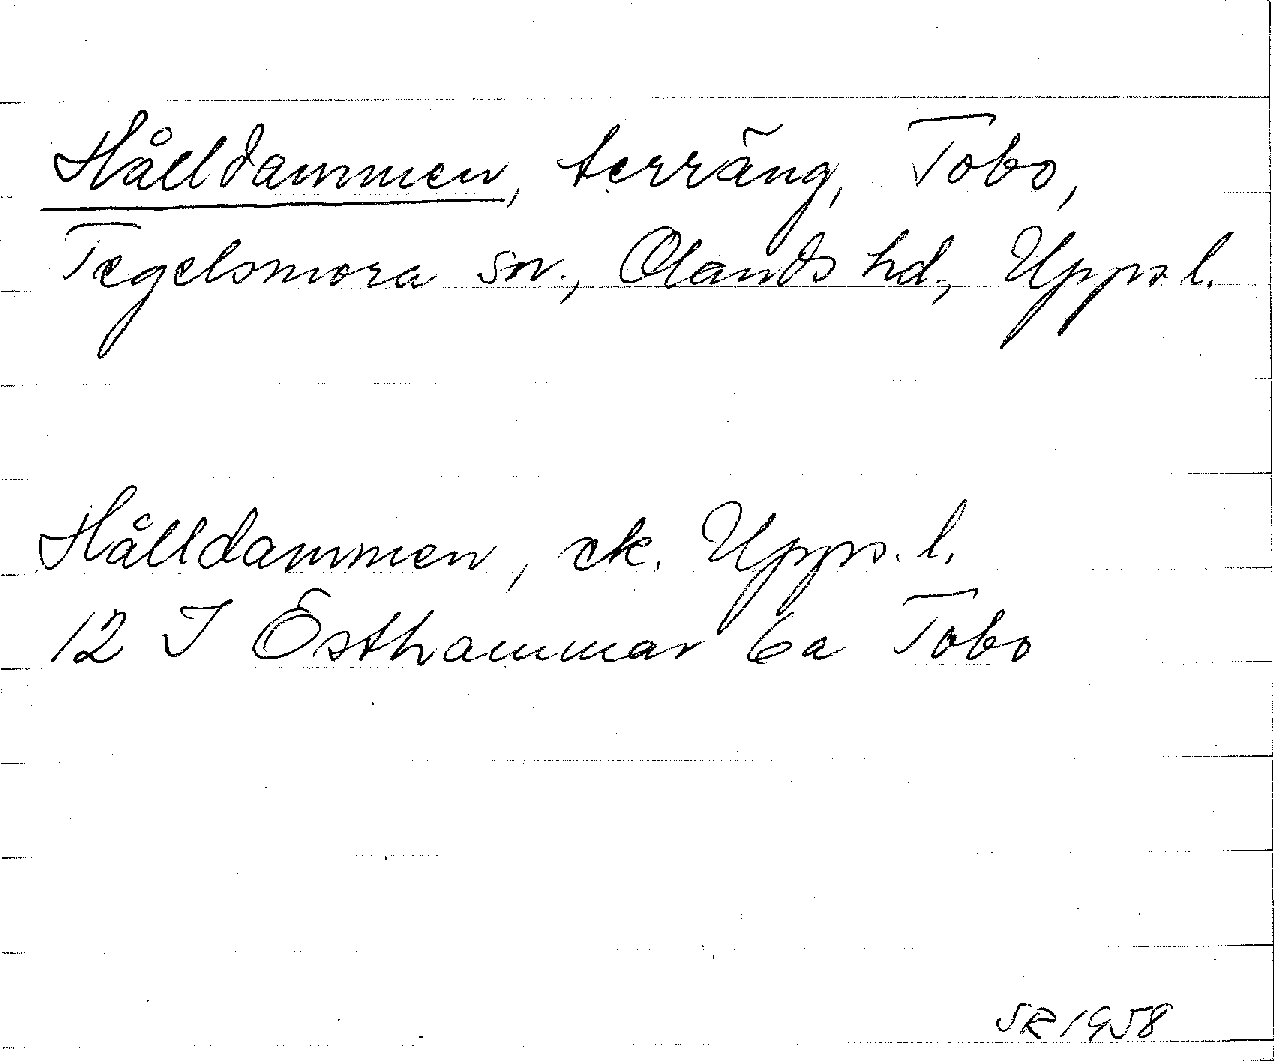 Hålldammen, terräng, Tobo,
Tegelsmora sn., Olands hd, Upps. l.
Hålldammen, ek. Upps. l.
12 I Östhammar 6a Tobo
SR 1958